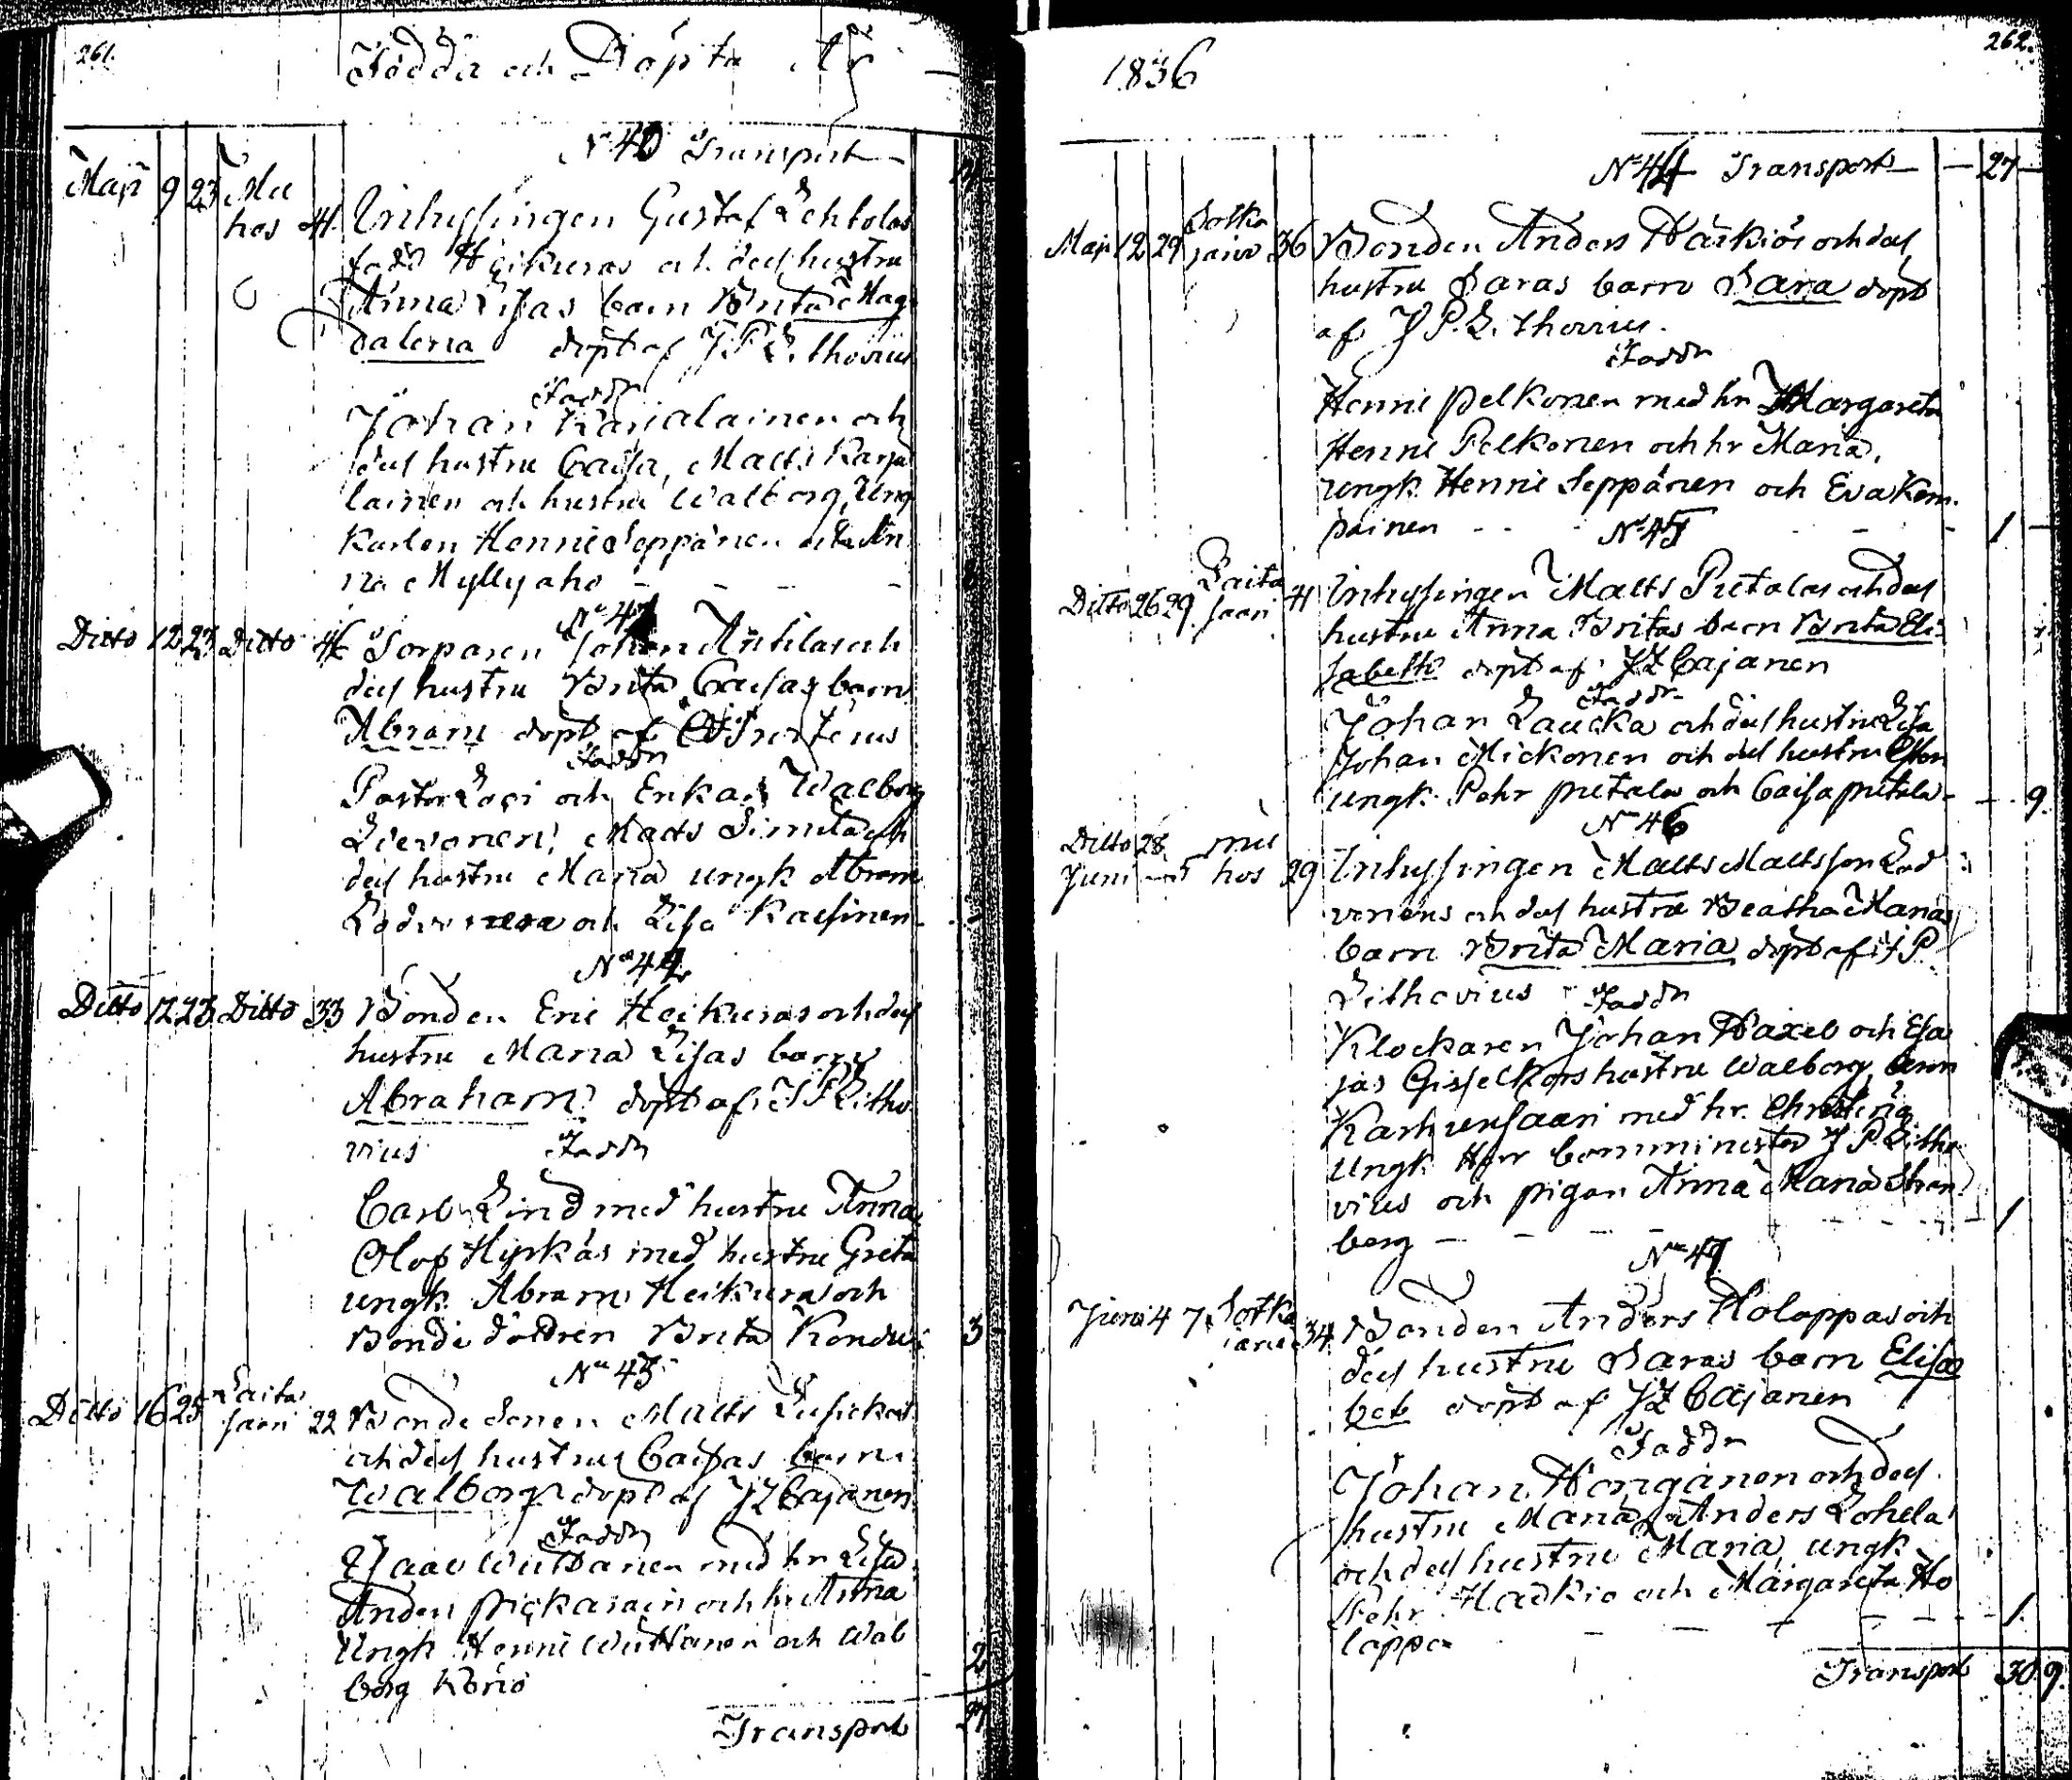 261.
Födda och Döpta År
N 40 Transport
Maji 9 23 Mu
hos 41 Inhysingen Gustaf Lehtolas
född Heikuras och dess hustru
Anna Lisas barn Brita Mag
dalena döpt af J P Lithovius
Faddr
Johan Karjalainen och
dess hustru Caisa, Matts Karja
lainen och hustru Walborg, Ung
karlen Henric Seppänen och An
na Myllyaho
N 41
Ditto 12 23 Ditto Torparen Johan Anttilas och
dess hustru Brita Caisas barn
Abram döpt af
Faddr
Pastor och Enkan Walborg
Lievonen, Matts Simila och
dess hustru Maria ungk Abram
och Lisa Kaisinen
N 42
Ditto 12 23 Ditto 33 Bonden Eric Heikuras och dess
hustru Maria Lisas barn
Abraham döpt af J P Litho
vius Faddr
Carl Lind med hustru Anna
Olof Hyrkäs med hustru Greta
ungk Abram Heikura och
Bonde dottren Brita Kondu 3
N 43
Ditto 16 25 Laita
saari 22 Bonde Sonen Matts
och dess hustrus Caisas barn
Walborg döpt af J Z Cajanen
Faddr
Isaac Wuttanen med hr Lisa
Anders Pickarain och hr Anna
Ungk Henric Wuttanen och Wal
borg Köriö 2
Transport 27
1836
262.
N 44 Transport 27
Maji 12 29 Sotka
järvi 36 Bonden Anders Härkiös och dess
hustru Saras barn Sara döpt
af J P. Lithovius.
Faddr
Henric Pelkonen med hr Margareta
Henric Pelkonen och hr Maria,
ungk Henric Seppänen och Eva Kem
painen 1
N 45
Ditto 26 29 Laita
saari 41 Inhysingen Matts Pietalas och dess
hustru Anna Britas barn Brita Eli
sabeth döpt af J Z Cajanen
Faddr
Johan Laucka och dess hustru Lisa
Johan Mickonen och dess hustru
ungk Pehr pietala och Caisa pietala 9.
N 46
Ditto 28 mu
Juni 5 hos 29 Inhysingen Matts Mattsson Lod
vinens och dess hustru Beatha Marias
barn Brita Maria döpt af J P
Lithovius Faddr
Klockaren Johan Waxel och Esa
jas Gisselkors hustru Walborg,
Karhunsaari med hr. Christina
Ungk Herr Comminister J P Litho
vius och pigan Anna Maria Stran
berg 1
N 47
Juni 4 7 Sotka
jarvi 34 Bonden Anders Holappas och
dess hustru Saras barn Elisa
bet döpt af J Z Cajanen
Faddr
Johan Honganen och dess
hustru Maria, Anders Lohela
och dess hustru Maria, ungk
Pehr Härkiö och Margareta Ho
lappa 1.
Transport 30 9.